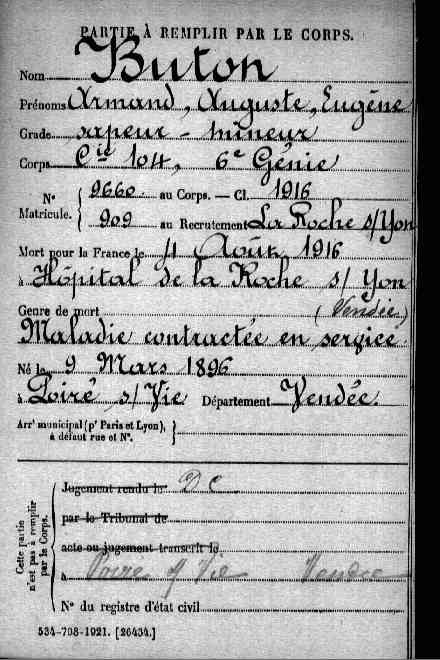 PARTIE À REMPLIR PAR LE CORPS.
Nom Buton
Prénoms Armand, Auguste, Eugène
Grade sapeur - mineur
Corps Cie 104, 6e Génie
N° Matricule. { 9660 au Corps. — Cl. 1916
909 au Recrutement La Roche s/Yon
Mort pour la France le 4 Août 1916
à Hôpital de la Roche s/ Yon
Genre de mort (Vendée)
Maladie contractée en service
Né le 9 Mars 1896
à Poiré s/Vie Département Vendée
Arrt municipal (pr Paris et Lyon), à défaut rue et N°. }
Cette partie n'est pas à remplir par le Corps.
Jugement rendu le D C
par le Tribunal de
acte ou jugement transcrit le
à Poiré s/ Vie Vendée
N° du registre d'état civil
534-708-1921. [26434.]